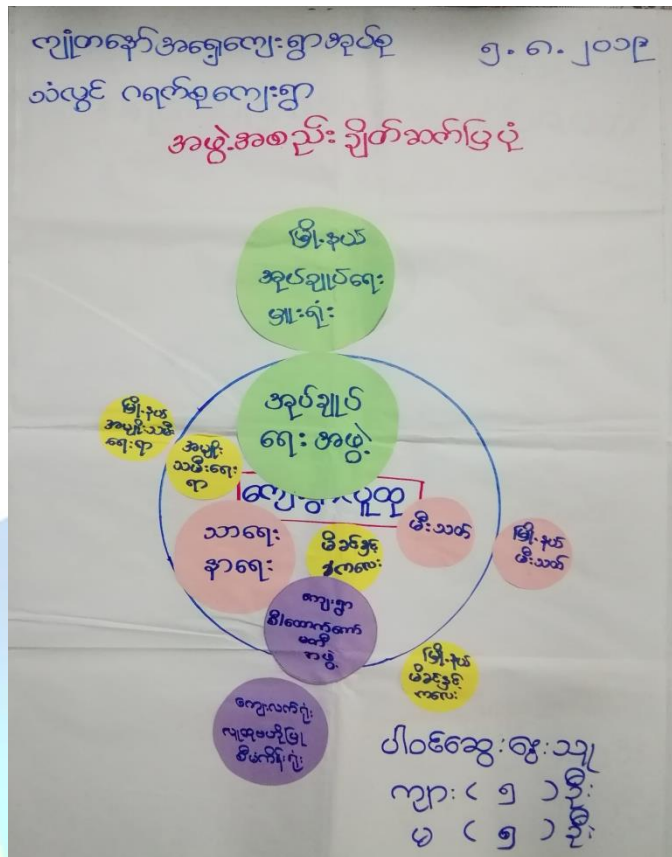 ကျုံတနော်အရှေ့ကျေးရွာအုပ်စု ၅.၈.၂၀၁၉
သံလွင် ဂရက်စုကျေးရွာ
အဖွဲ့အစည်းချိတ်ဆက်ပြပုံ
မြို့နယ်
အုပ်ချုပ်ရေး
မှူးရုံး
အုပ်ချုပ်
ရေးအဖွဲ့
မြို့နယ်
အမျိုးသမီး
ရေးရာ
အမျိုး
သမီးရေး
ရာ
ကျေးရွာလူထု
သာရေး
နာရေး
မိခင်နှင့်
ကလေး
မီးသတ်
မြို့နယ်
မီးသတ်
ကျေးရွာ
စီ/ထောက်ကော်
မတီ
အဖွဲ့
မြို့နယ်
မိခင်နှင့်
ကလေး
ကျေးလက်ရုံး
လူထုဗဟိုပြု
စီမံကိန်းရုံး
ပါဝင်ဆွေးနွေးသူ
ကျား ( ၅ ) ဦး
မ ( ၅ ) ဦး